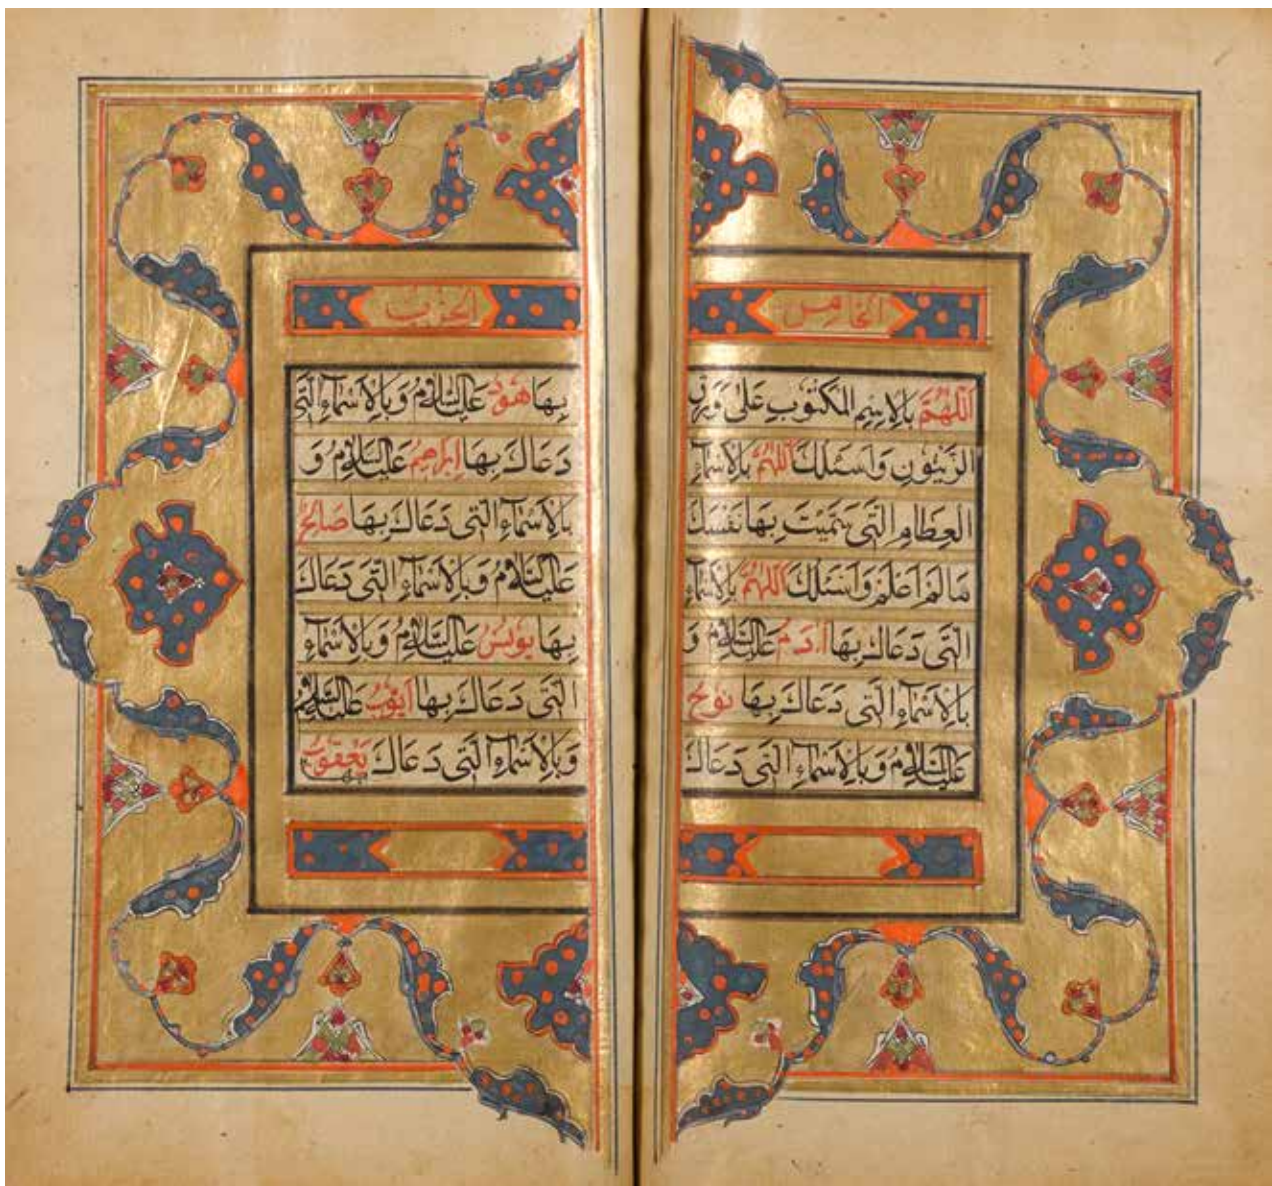 الخامس
اَللّٰهُمَّ بِالْاِسْمِ الْمَكْتُوْبِ عَلٰى وَرَقِ
الزَّيْتُوْنِ وَاَسْئَلُكَ اَللّٰهُمَّ بِالْاَسْمَآءِ
الْعِظَامِ الَّتِى سَمَّيْتَ بِهَا نَفْسَكَ
مَالَمْ اَعْلَمْ وَاَسْئَلُكَ اَللّٰهُمَّ بِالْاَسْمَآءِ
الَّتِى دَعَاكَ بِهَا اٰدَمُ عَلَيْهِ السَّلَامُ وَ
بِالْاَسْمَآءِ الَّتِى دَعَاكَ بِهَا نُوْحٌ
عَلَيْهِ السَّلَامُ وَبِالْاَسْمَآءِ الَّتِى دَعَاكَ
الحزب
بِهَا هُوْدٌ عَلَيْهِ السَّلَامُ وَبِالْاَسْمَآءِ الَّتِى
دَعَاكَ بِهَا اِبْرَاهِيْمُ عَلَيْهِ السَّلَامُ وَ
بِالْاَسْمَآءِ الَّتِى دَعَاكَ بِهَا صَالِحٌ
عَلَيْهِ السَّلَامُ وَبِالْاَسْمَآءِ الَّتِى دَعَاكَ
بِهَا يُوْنُسُ عَلَيْهِ السَّلَامُ وَبِالْاَسْمَآءِ
الَّتِى دَعَاكَ بِهَا اَيُّوْبُ عَلَيْهِ السَّلَامُ
وَبِالْاَسْمَآءِ الَّتِى دَعَاكَ بِهَا يَعْقُوْبُ